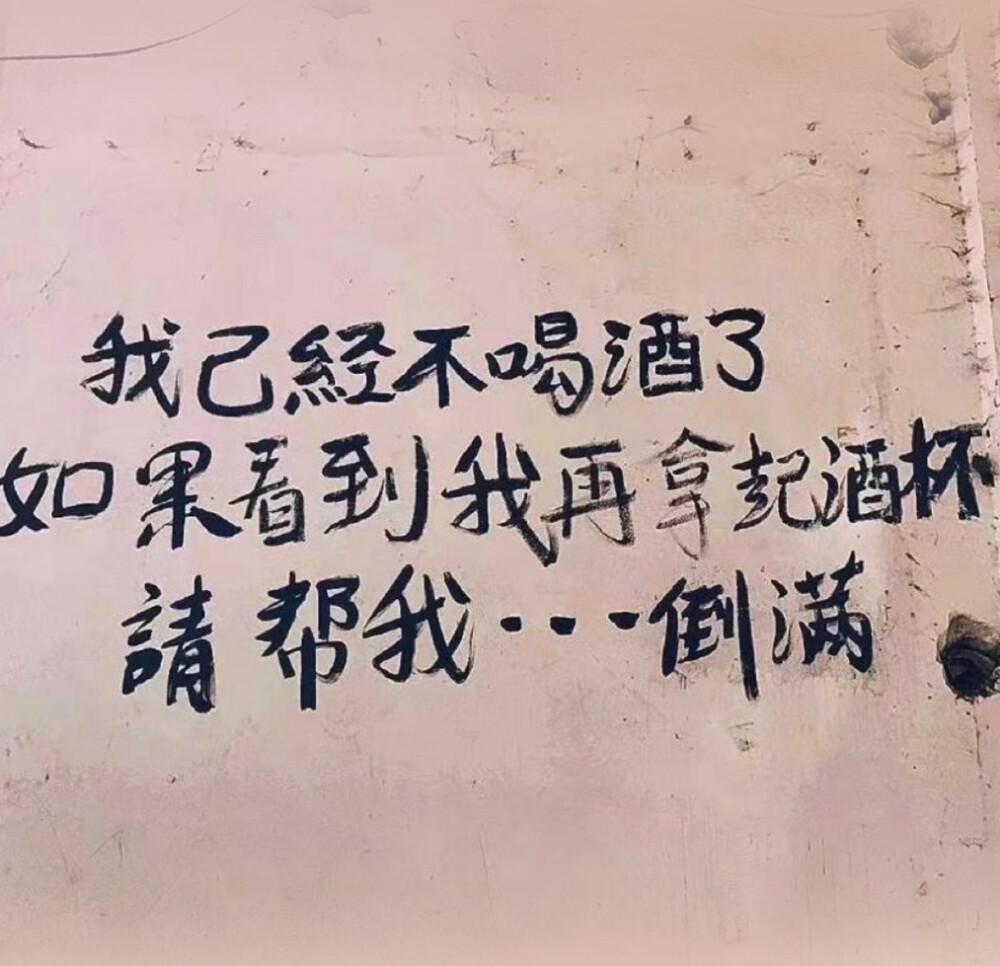 我己経不喝酒了
如果看到我再拿起酒杯
請帮我···倒满